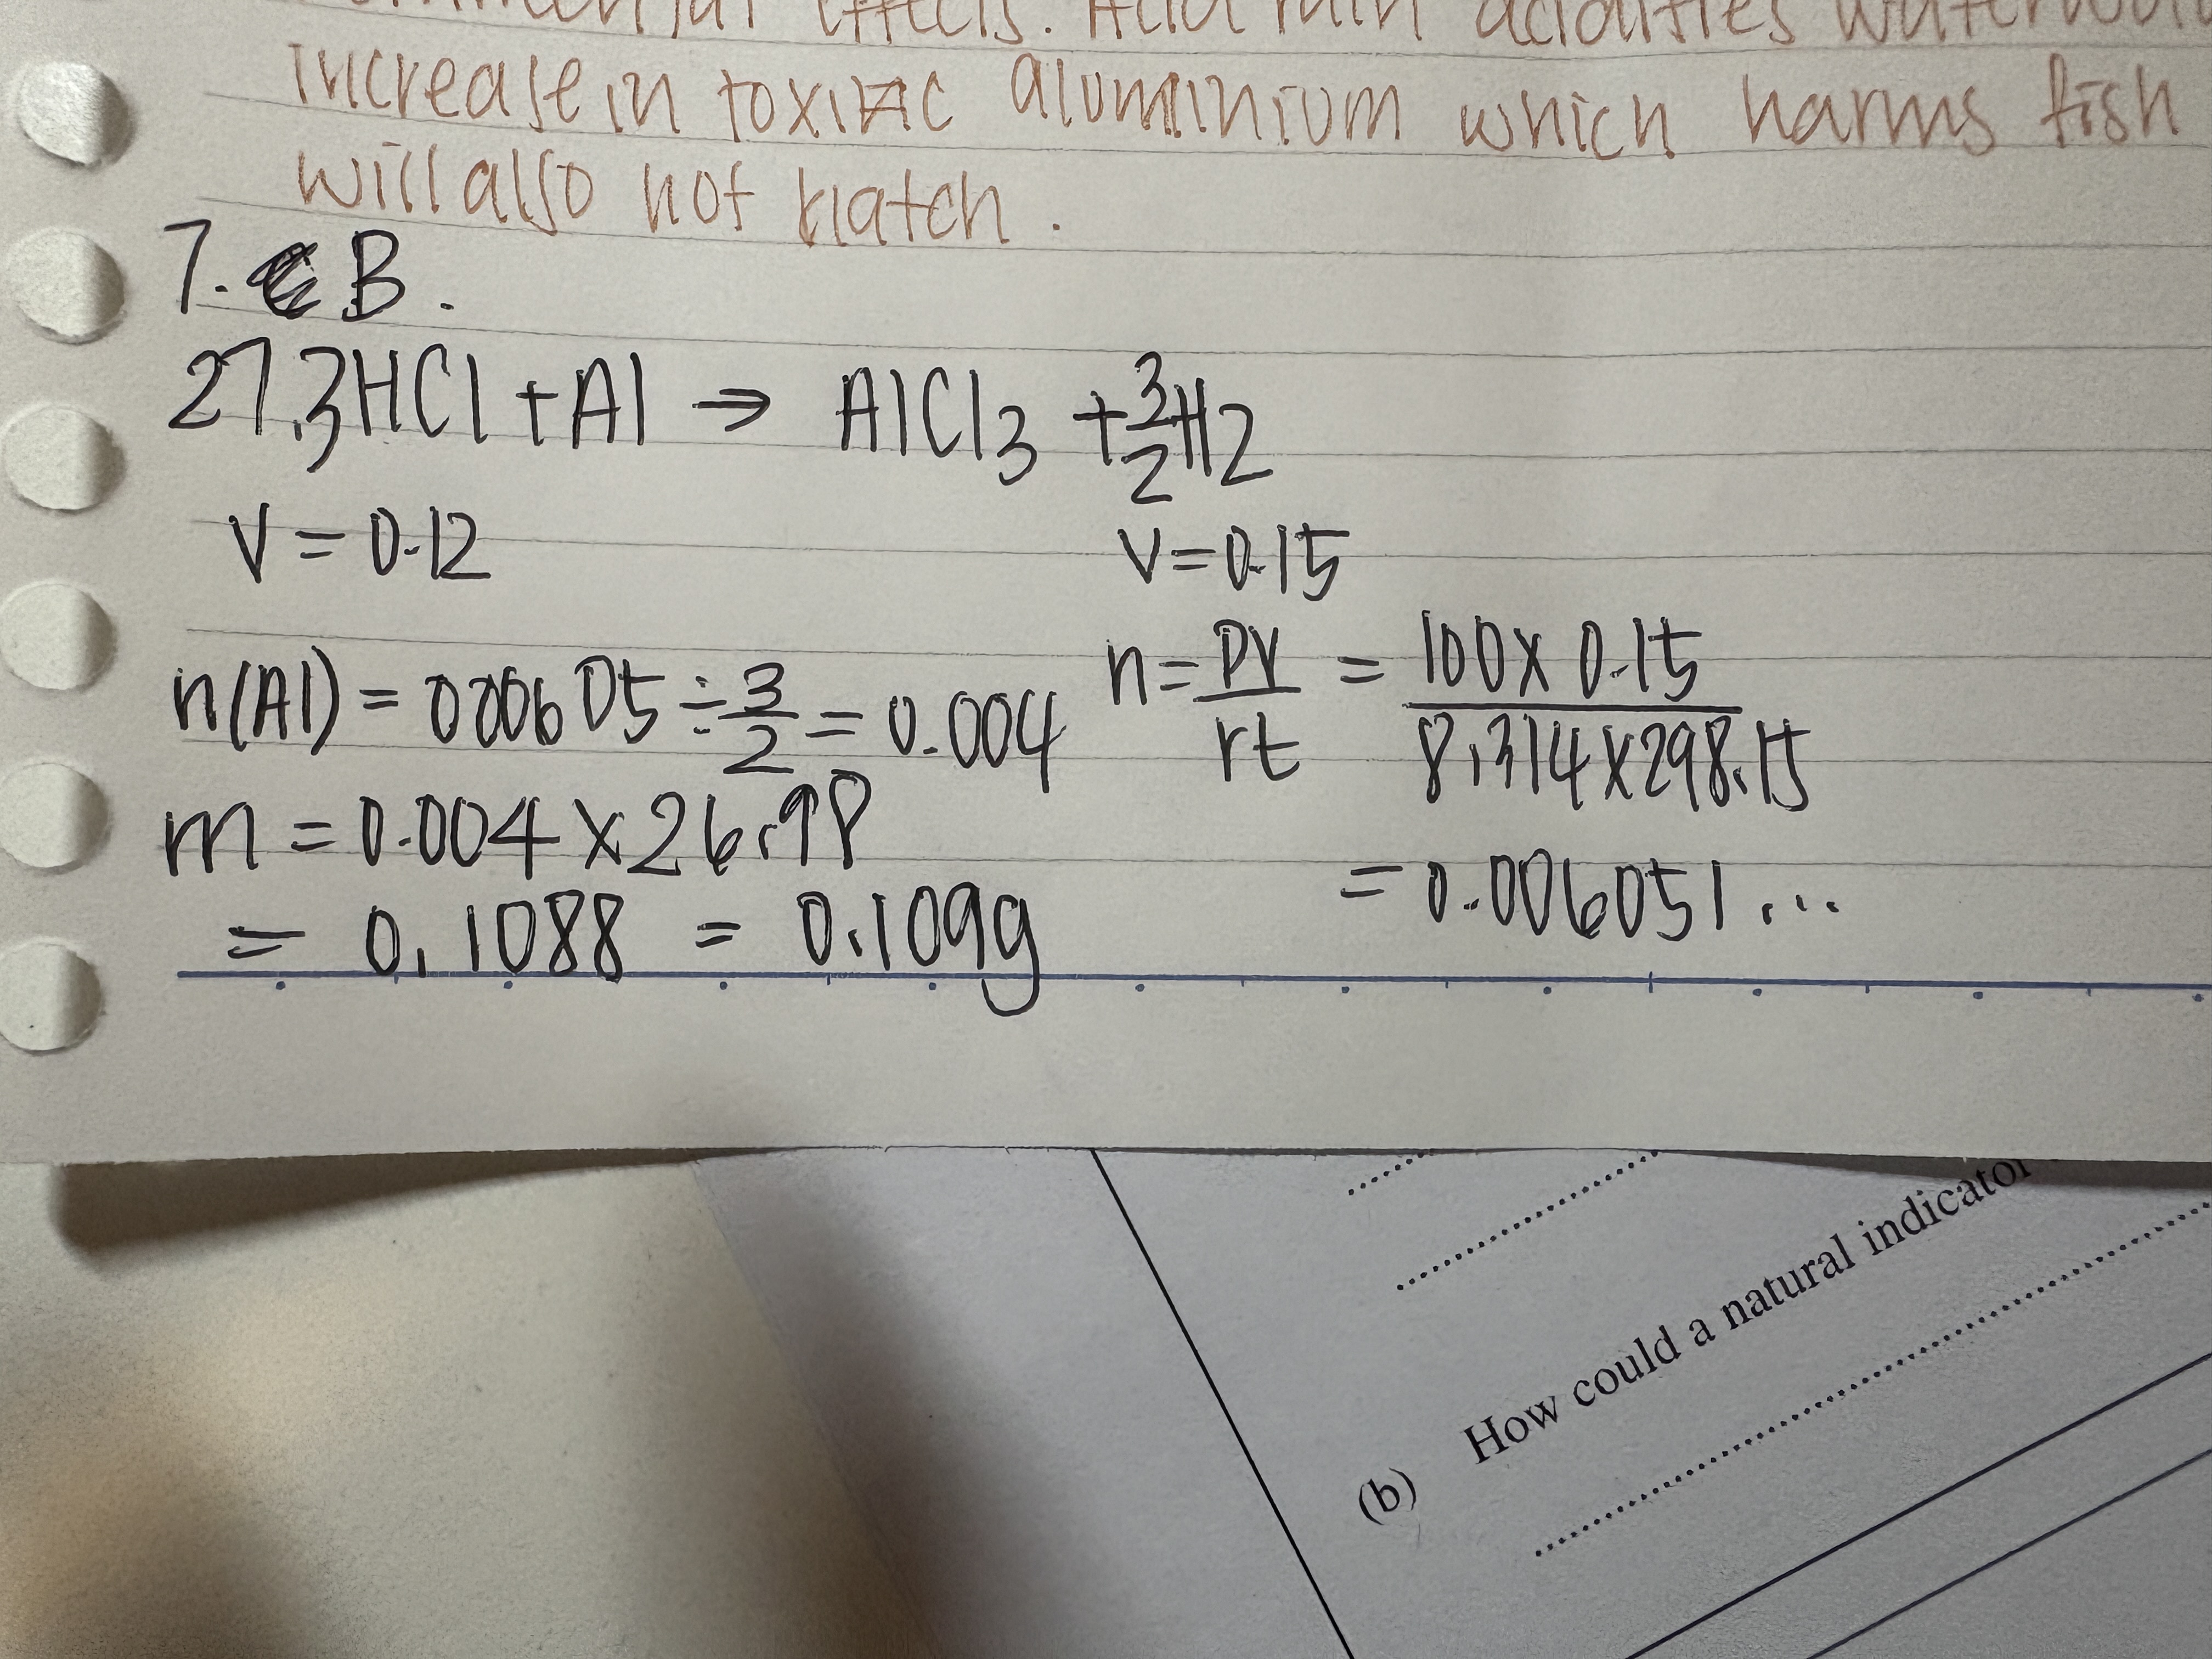 effects. Acid rain acidifies
increase in toxic aluminium which harms fish
will also not hatch.
7. B.
27. 3HCl + Al → AlCl3 + 3/2 H2
V = 0.12 V = 0.15
n(Al) = 000605 ÷ 3/2 = 0.004 n = PV/rt = 100 x 0.15/8.314 x 298.15
m = 0.004 x 26.98 = 0.006051...
= 0.1088 = 0.109g
(b) How could a natural indicator